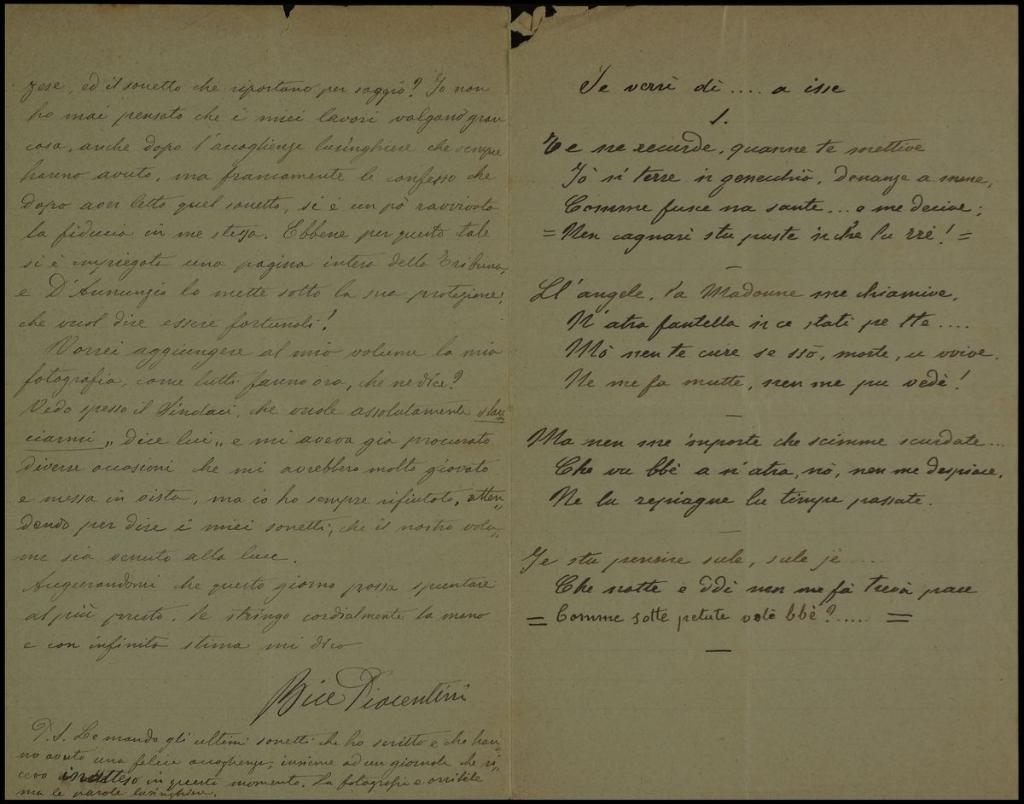 zese, ed il sonetto che riportano per saggio? Io non
ho mai pensato che i miei lavori valgano gran
cosa, anche dopo l'accoglienze lusinghiere che sempre
hanno avuto, ma francamente le confesso che
dopo aver letto quel sonetto, si è un pò ravvivata
la fiducia in me stessa. Ebbene per questo tale
si è impiegata una pagina intera della Tribuna,
e D'Annunzio lo mette sotto la sua protezione,
che vuol dire essere fortunati!
Vorrei aggiungere al mio volume la mia
fotografia, come tutti fanno ora, che ne dice?
Vedo spesso il Sindaci, che vuole assolutamente slan
ciarmi „ dice lui „ e mi aveva già procurato
diverse occasioni che mi avrebbero molto giovato
e messa in vista, ma io ho sempre rifiutato, atten
dendo per dire i miei sonetti, che il nostro volu„
me sia venuto alla luce.
Augurandomi che questo giorno possa spuntare
al più presto, le stringo cordialmente la mano
e con infinita stima mi dico
Bice Piacentini
P.S. Le mando gli ultimi sonetti che ho scritto e che han„
no avuto una felice accoglienza, insieme ad un giornale che ri„
cevo inatteso in questo momento. La fotografia è orribile
ma le parole lusinghiere.
Je verrì dì .... a isse
1.
Te ne recurde, quanne te mettive
Jò n' terre in genecchiò, denanze a mene,
Comme fusce na sante... e me decive;
= Nen cagnarì stu puste in che lu rré! =
Ll'angele, la Madonne me chiamive,
N'atra fantella in ce stati pe tte....
Mò nen te cure se ssò, morte, u vvive.
Ne me fa mutte, nen me pu vedè!
Ma nen me 'mporte che scimme scurdate...
Che vu bbè a n'atra, nò, nen me despiace,
Ne lu repiagne lu timpe passate.
Je stu penzire sule, sule jè....
Che notte e ddì non me fà truvà pace
= Comme sotte petute volè bbè?..... =